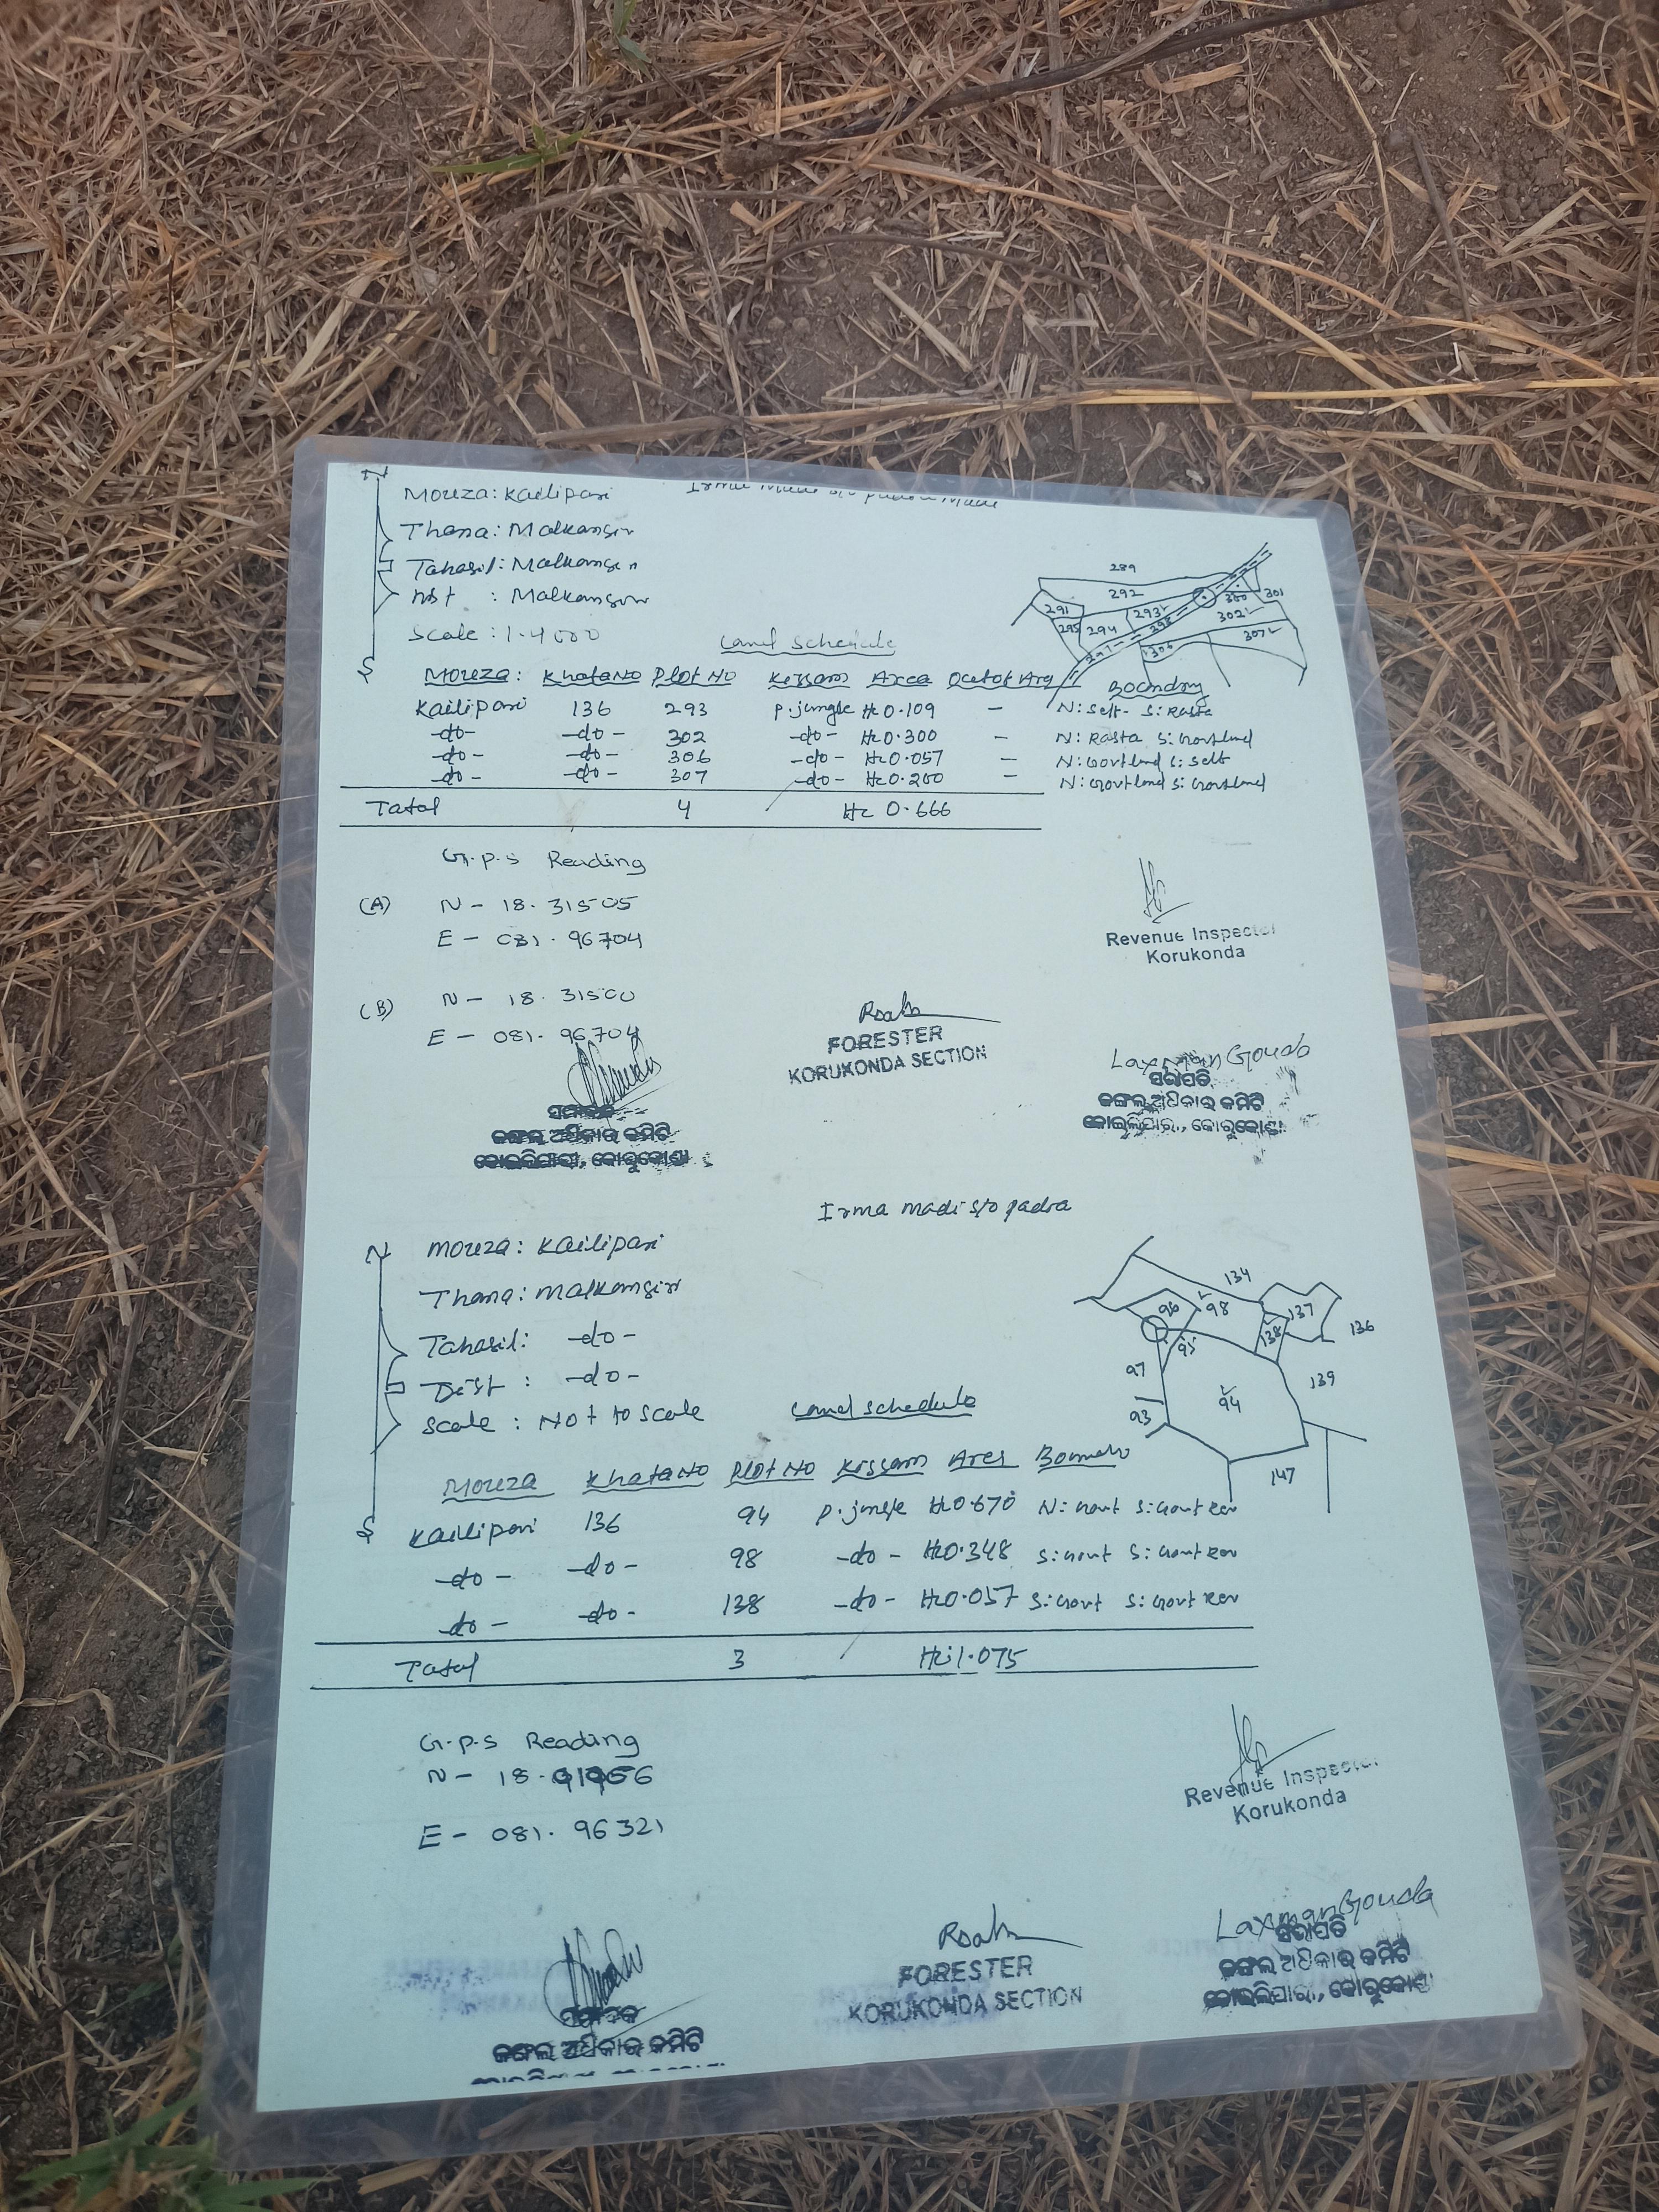 N
Mouza: Kailipari
Thana: Malkangiri
Tahasil: Malkangiri
Dist : Malkangiri
Scale : 1.4000
S
289
292
291
293
300
301
295
294
298
302
297
306
307
Land Schedule
Mouza: Khata No Plot No Kissam Area Boundry
Kailipari 136 293 P.jungle Hc 0.109 - N: Self- S: Rasta
-do- -do- 302 -do- Hc 0.300 - N: Rasta S: Govt land
-do- -do- 306 -do- Hc 0.057 - N: Govt land S: Self
-do- -do- 307 -do- Hc 0.200 - N: Govt land S: Govt land
Tatal 4 Hc 0.666
G.p.s Reading
(A) N - 18. 31505
E - 081. 96704
Revenue Inspector
Korukonda
(B) N - 18. 31500
E - 081. 96704
FORESTER
KORUKONDA SECTION
Laxman Gouda
ସଭାପତି
ଜଙ୍ଗଲ ଅଧିକାର କମିଟି
କୋଇଲିପାରୀ, କୋରୁକୋଣ୍ଡା
ସମ୍ପାଦକ
ଜଙ୍ଗଲ ଅଧିକାର କମିଟି
କୋଇଲିପାରୀ, କୋରୁକୋଣ୍ଡା
Irma madi s/o padra
N
Mouza: Kailipari
Thana: Malkangiri
Tahasil: -do-
Dist : -do-
Scale : Not to Scale
S
134
96
98
137
138
136
95
97
139
94
93
147
Land schedule
Mouza Khata No Plot No Kissam Area
Kailipari 136 94 P.jungle Hc 0.670 N: Govt S: Govt Rev
-do- -do- 98 -do- Hc 0.348 S: Govt S: Govt Rev
-do- -do- 138 -do- Hc 0.057 S: Govt S: Govt Rev
Tatal 3 Hc 1.075
G.p.s Reading
N - 18.
E - 081. 96321
Revenue Inspector
Korukonda
FORESTER
KORUKONDA SECTION
Laxman Gouda
ସଭାପତି
ଜଙ୍ଗଲ ଅଧିକାର କମିଟି
କୋଇଲିପାରୀ, କୋରୁକୋଣ୍ଡା
ସମ୍ପାଦକ
ଜଙ୍ଗଲ ଅଧିକାର କମିଟି